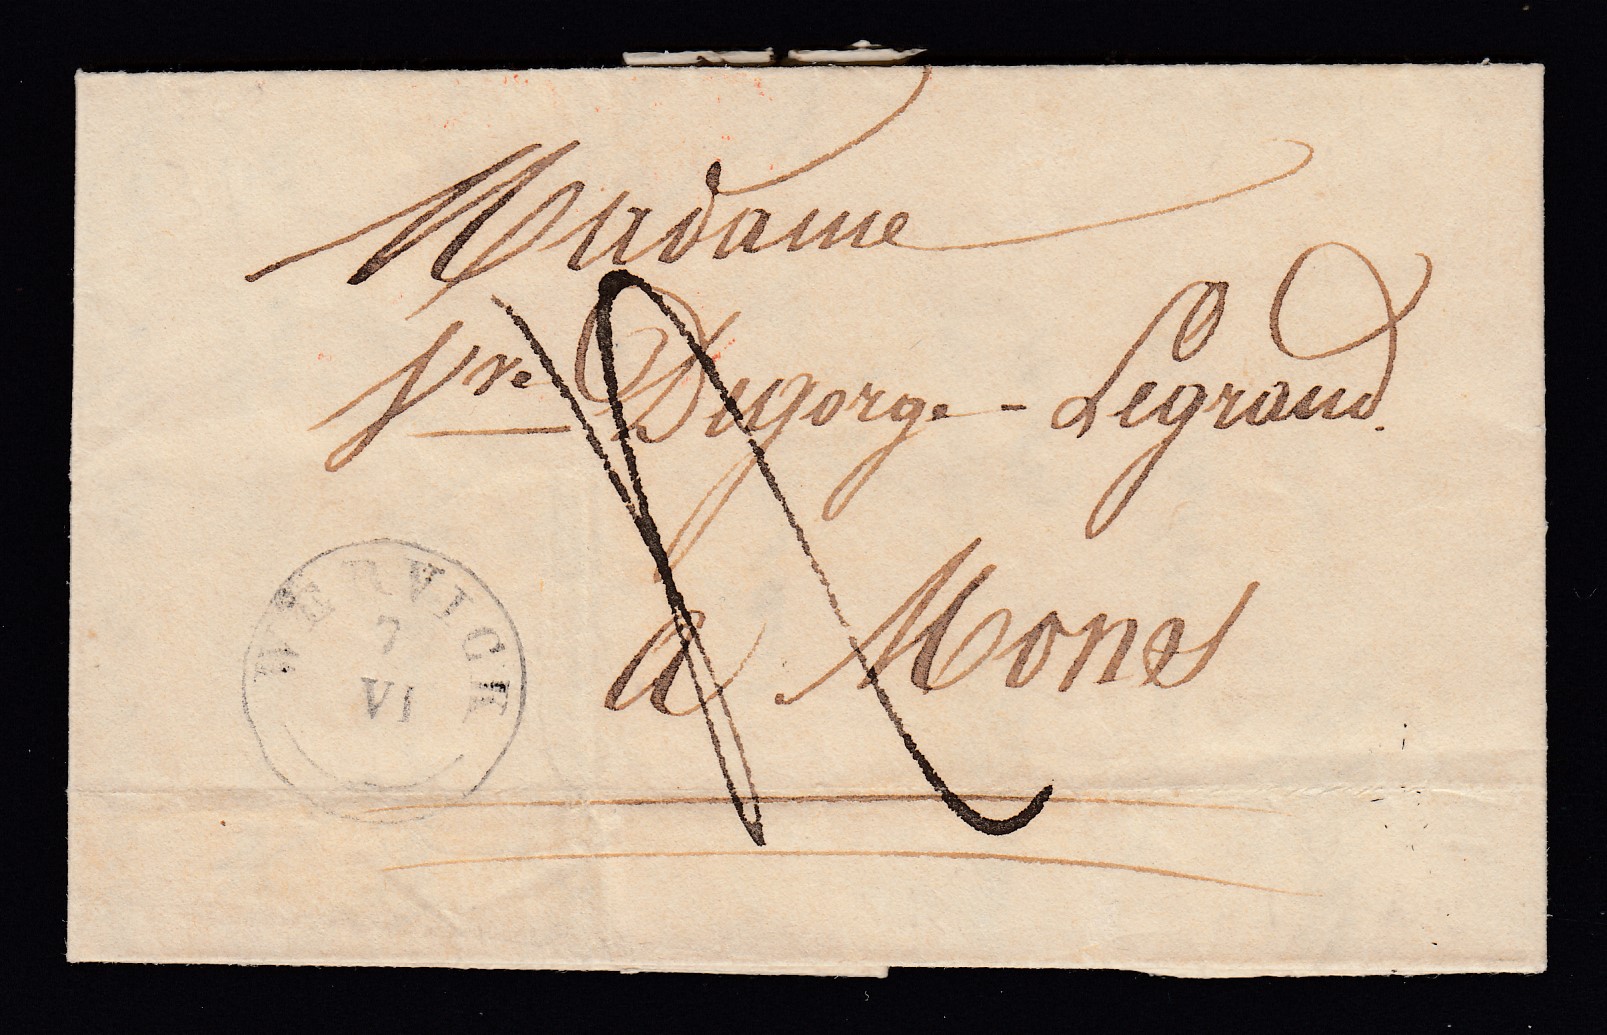 Madame
Vve Dugorge - Legrand.
à Mons
WERVICK
7
VI